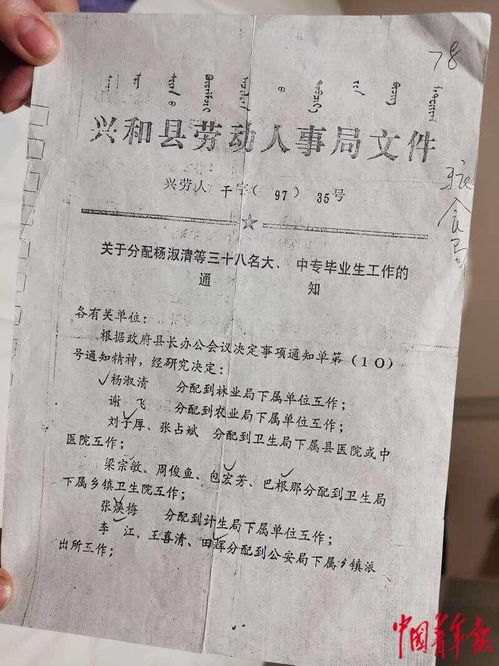 78
兴和县劳动人事局文件
兴劳人 干字( 97 ) 35 号
关于分配杨淑清等三十八名大、中专毕业生工作的
通 知
各有关单位:
根据政府县长办公会议决定事项通知单第(10)
号通知精神,经研究决定:
杨淑清 分配到林业局下属单位工作;
谢 飞 分配到农业局下属单位工作;
刘子厚、张占斌 分配到卫生局下属县医院或中
医院工作;
梁宗敏、周俊鱼、包宏芳、巴根那分配到卫生局
下属乡镇卫生院工作;
张焕梅 分配到计生局下属单位工作;
李 江、王喜清、田辉分配到公安局下属乡镇派
出所工作;
中国青年报